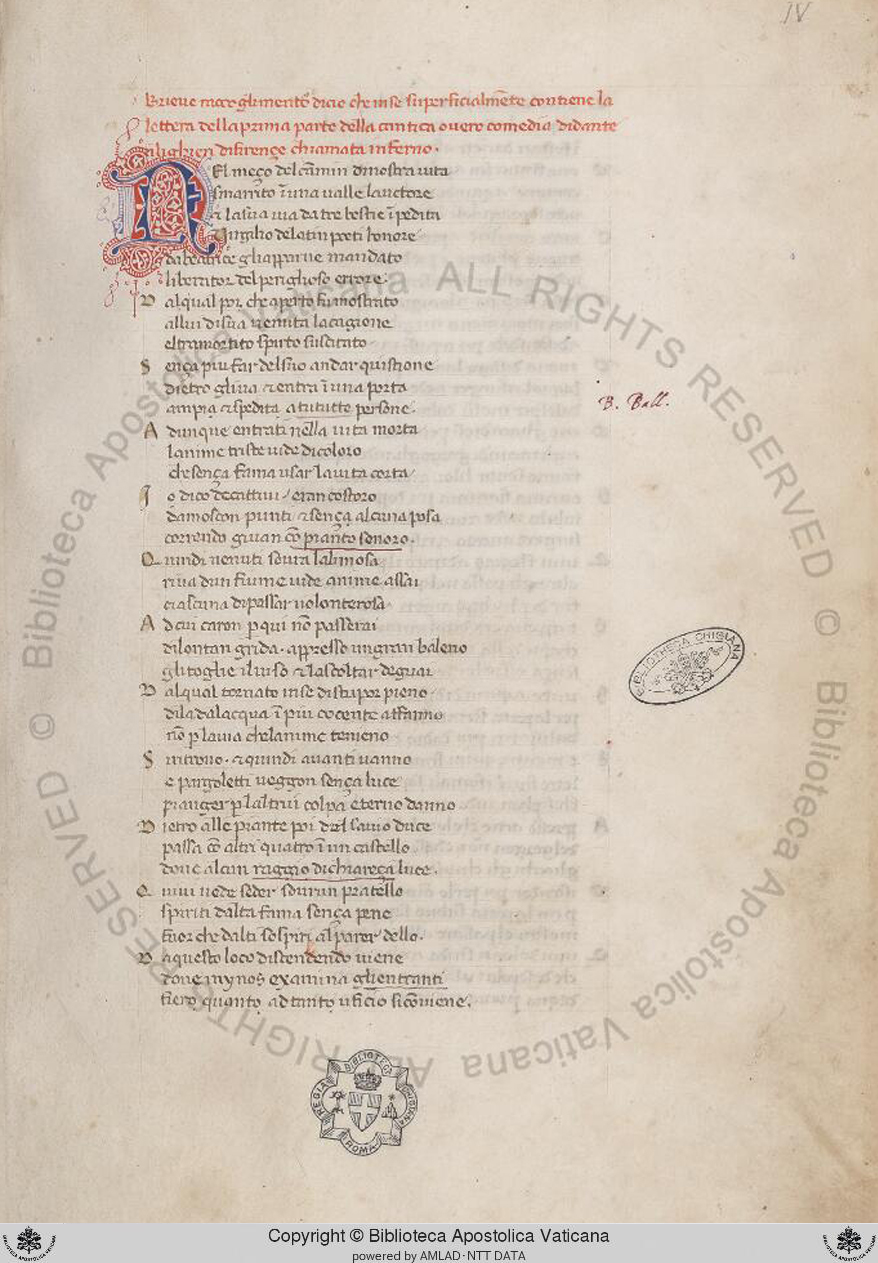 IV
Brieve racoglimento dicio che inse superficialmēte contiene la
lettera della prima parte della cantica overo comedia di dante
alighieri di firençe chiamata inferno.
NEl meço del cāmin di nostra vita
smarrito ī una valle lauctore
& la sua via da tre bestie īpedita
Virgilio de latin poeti honore
da beatrice gli apparve mandato
liberator del periglioso errore.
Dal qual poi che aperto fu mostrato
allui di sua venuta la cagione
el tramortito spirto suscitato
Sença piu far del suo andar quistione
dietro gli va & entra ī una porta
ampia & spedita a tututte persone.
Adunque entrati nella vita morta
lanime triste vide di coloro
che sença fama usar la vita corta
Io dico de cattivi / eran costoro
da moscon punti & sença alcuna posa
correndo givan cō pianto sonoro.
Quindi venuti sovra lalimosa
riva dun fiume vide anime assai
ciascuna di passar volonterosa
Ad cui caron p qui nō passerai
di lontan grida. appresso un gran baleno
gli toglie il viso & lascoltar de guai
Dal qual tornato inse di stupor pieno
di la da lacqua ī piu cocente affanno
nō p lavia che lanime tenieno
Si ritrovo. & quindi avanti vanno
e pargoletti veggon sença luce
pianger p laltrui colpa eterno danno
Dietro alle piante poi del savio duce
passa cō altri quatro ī un castello
dove alcun raggio di chiareça luce.
Quivi vede seder sovra un pratello
spiriti dalta fama sença pene
fuor che dalti sospiri al parer dello.
Da questo loco discendendo viene
dove mynos examina gli entranti
fiero quanto ad tanto uficio si cōviene.
B. Ball.
BIBLIOTHECA CHIGIANA
REGIA BIBLIOTECA CHIGIANA ROMA
© Biblioteca Apostolica Vaticana ALL RIGHTS RESERVED
© Biblioteca Apostolica Vaticana ALL RIGHTS RESERVED
Copyright © Biblioteca Apostolica Vaticana
powered by AMLAD·NTT DATA